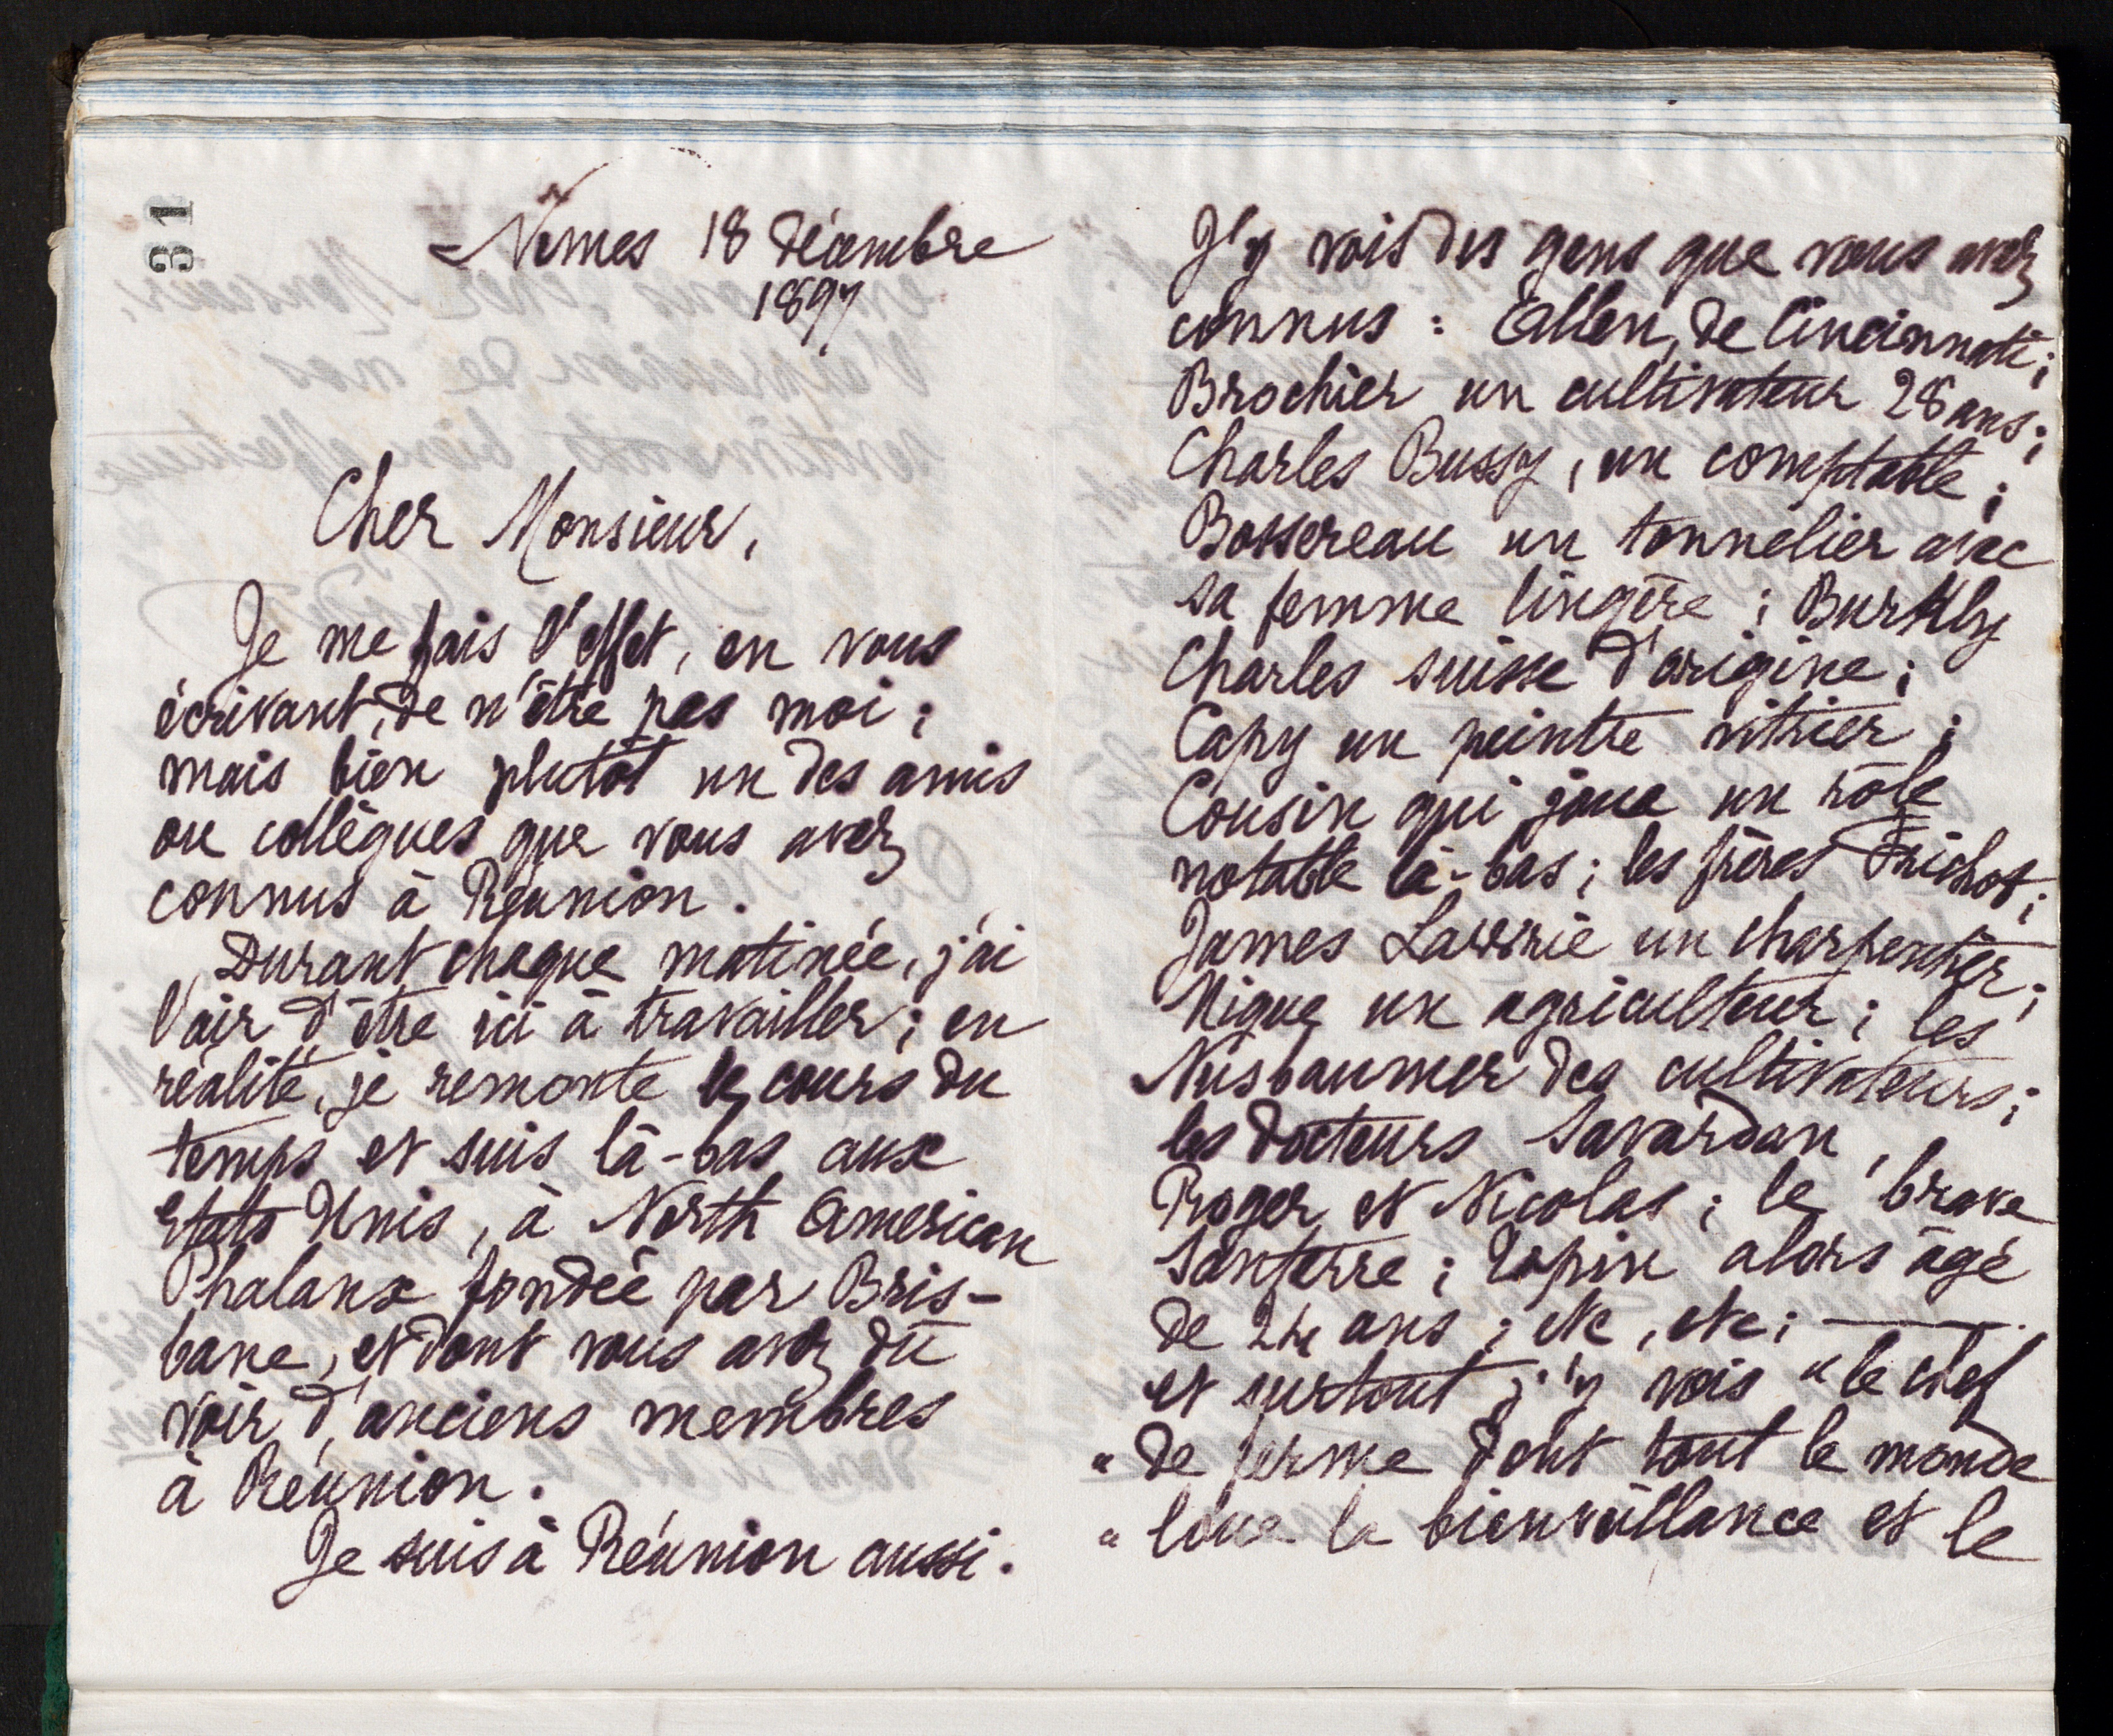 31
Nimes 18 décembre
1897
Cher Monsieur,
Je me fais l'effet, en vous
écrivant, de n'être pas moi ;
mais bien plutôt un des amis
ou collègues que vous avez
connus à Réunion.
Durant chaque matinée, j'ai
l'air d'être ici à travailler ; en
réalité, je remonte le cours du
temps et suis là-bas aux
Etats Unis, à North American
Phalanx fondée par Bris-
bane, et dont vous avez dû
voir d'anciens membres
à Réunion.
Je suis à Réunion aussi.
J'y vois des gens que vous avez
connus : Allen, de Cincinnati ;
Brochier un cultivateur 28 ans ;
Charles Bussy, un comptable ;
Bossereau un tonnelier avec
sa femme lingère ; Burkly
Charles suisse d'origine ;
Capy un peintre vitrier ;
Cousin qui joue un rôle
notable là-bas ; les frères Frichot ;
James Lawrie un charpentier ;
Nigue un agriculteur ; les
Nusbaumer des cultivateurs ;
les docteurs Savardan,
Roger et Nicolas ; le brave
Santerre ; Lopin alors âgé
de 24 ans ; etc, etc ;
et surtout j'y vois "le chef
" de ferme dont tout le monde
" loue la bienveillance et le